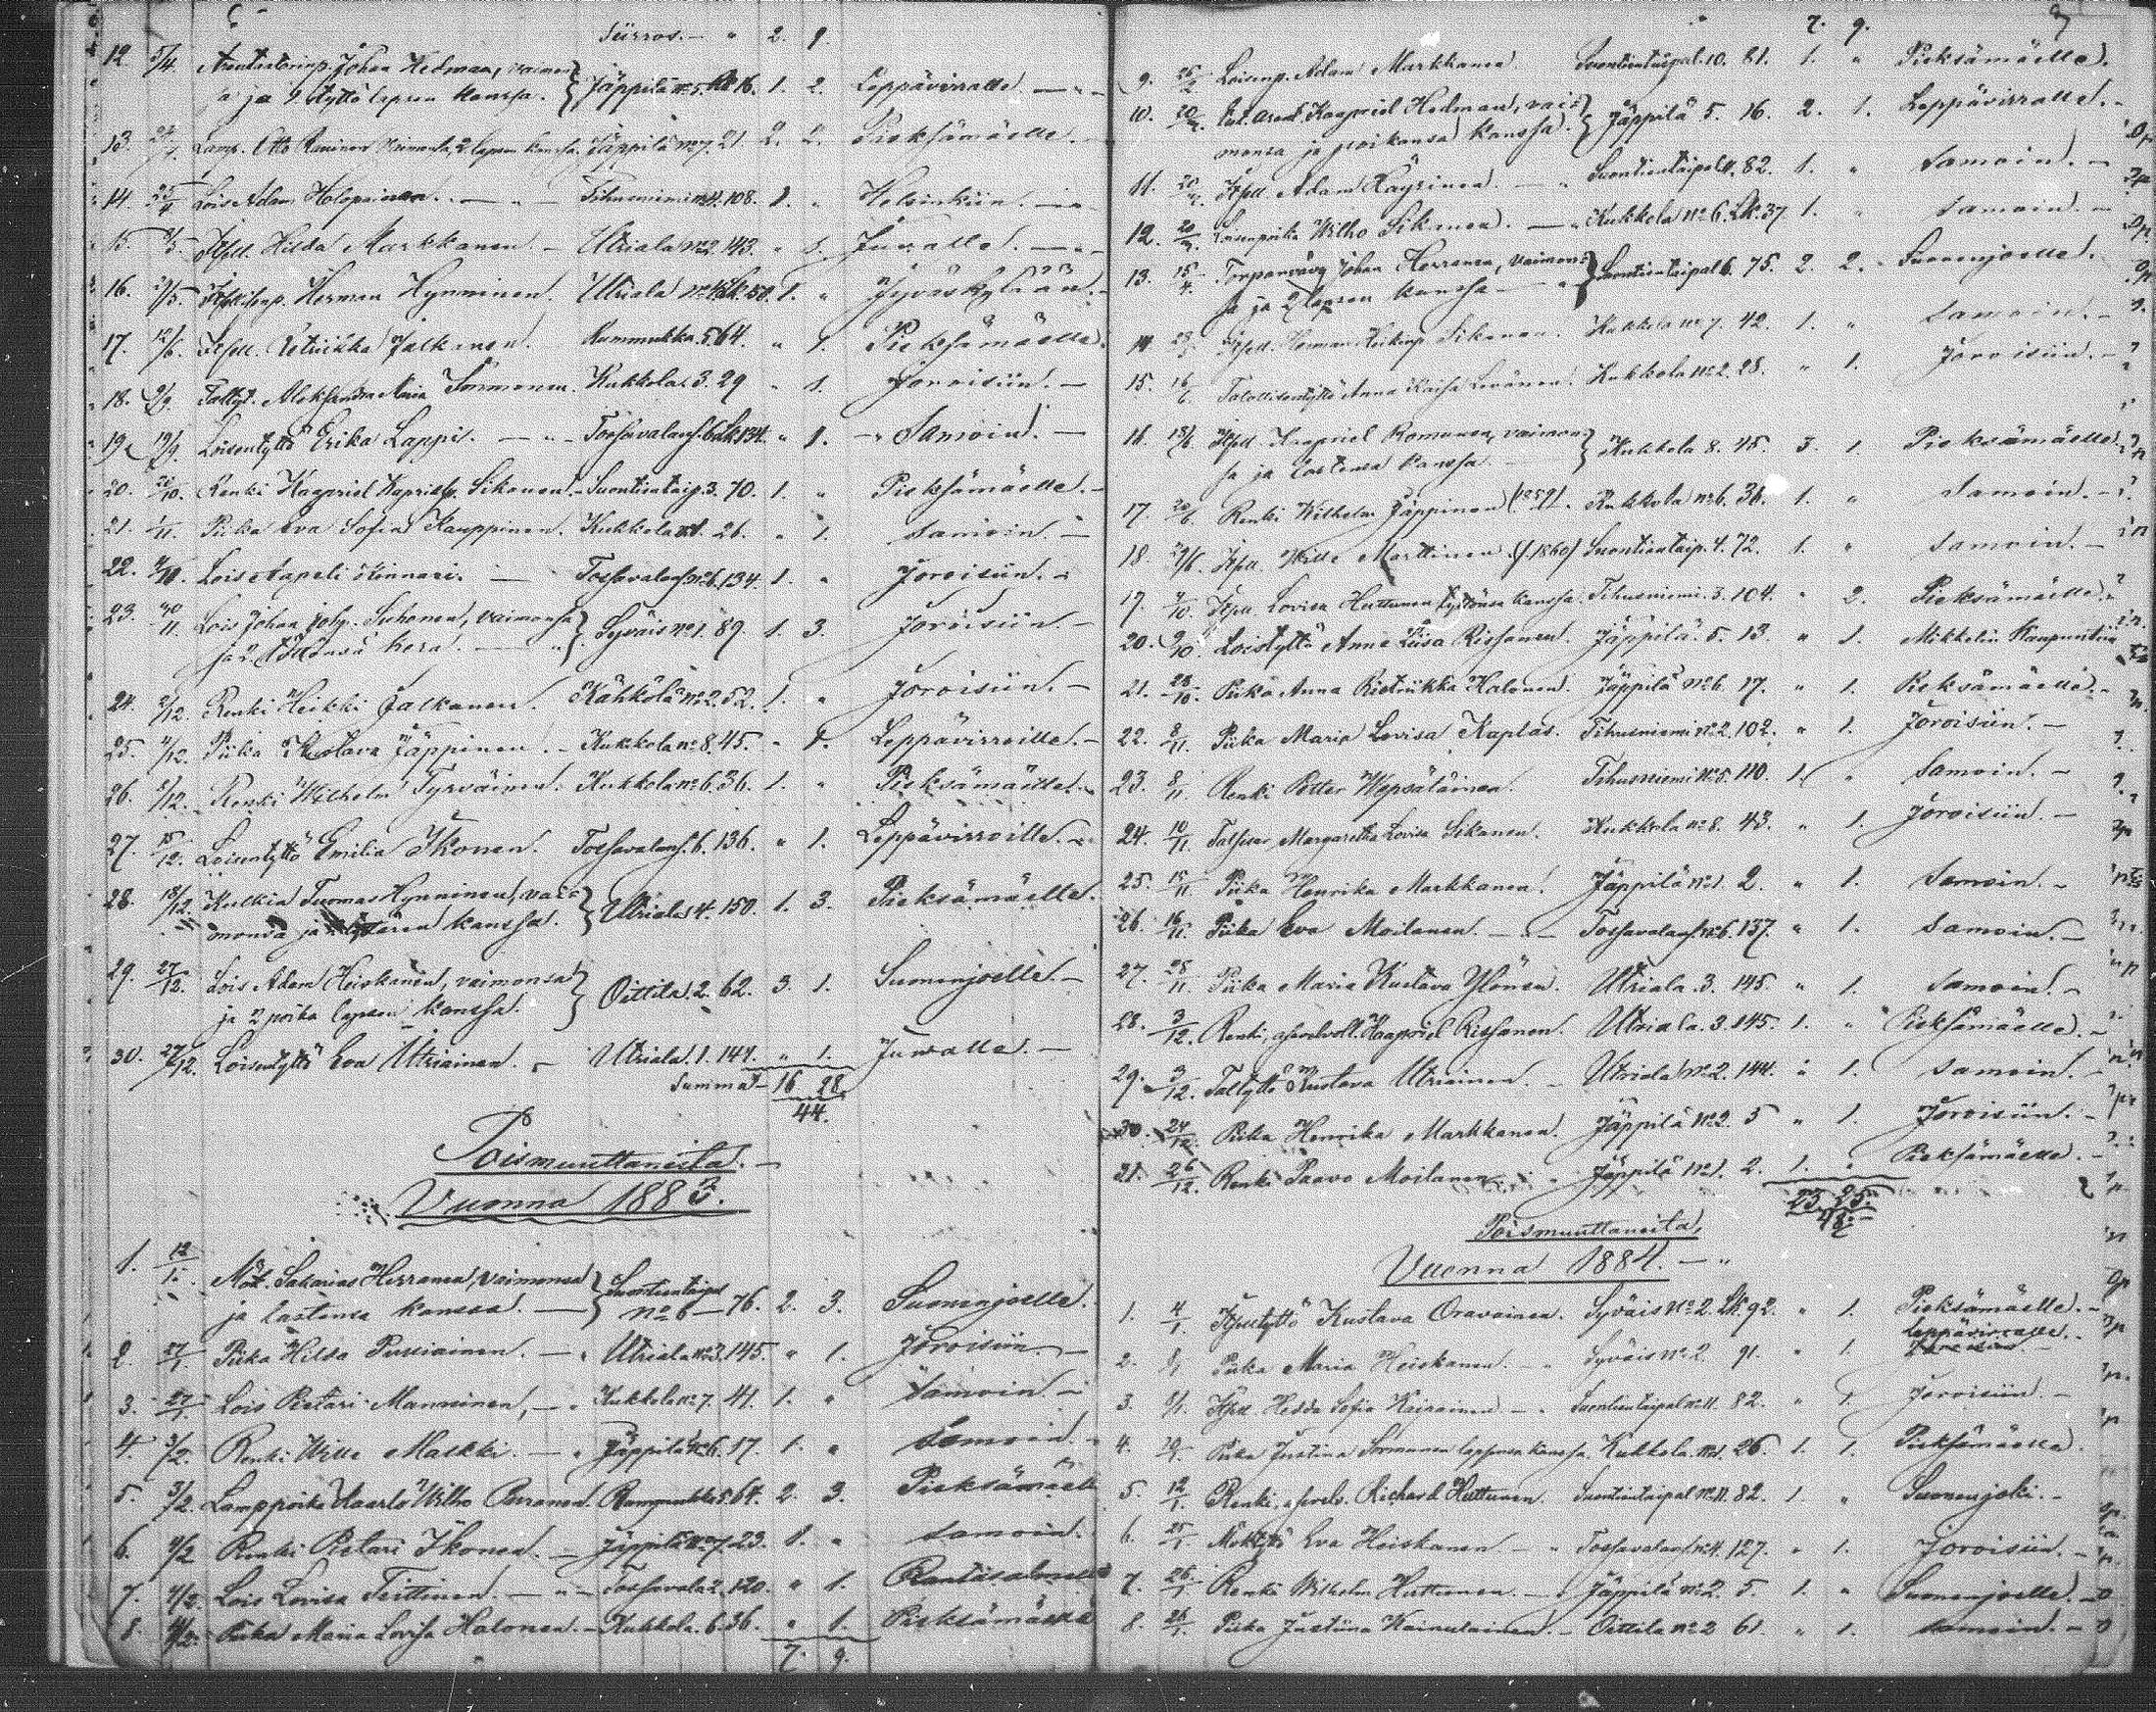 Siirros. – " 2. 9.
12. 5/4. Johan Hedman, vaimon
sa ja 1 tyttö lapsen kanssa. Jäppilä № 5. 16. 1. 2. Leppävirralle. –
13. Lamp. Otto vaimonsa, 2 lapsen kanssa. Jäppilä № 7. 21. 2. 2. Pieksämäelle.
14. 25/4 Lois Adam Holopainen. – Tihusniemi № 4. 108. 1. " Helsinkiin. –
15. Itsell. Hilda Markkanen. – Utriala № 2. 143. " 1. Juvalle. –
16. Herman Hynninen. Utriala № 4. 150. 1. " Jyväskylään.
17. 12/6. Itsell. Jalkanen. Rummukka. 5. 64. " 1. Pieksämäelle.
18. Aleksandra Maria Sormunen. Kukkola. 3. 29 " 1. Joroisiin. –
19. 19/9. Loisentyttö Erika Lappi. – Tossavalans. 6. 134. " 1. – Samoin. –
20. 20/10. Renki Kaapriel Sikanen. – Suontientaip. 3. 70. 1. " Pieksämäelle. –
21. 1/11. Piika Eva Sofia Kauppinen. Kukkola № 1. 26. " 1. samoin. –
22. Lois Aapeli Kinnari. – Tossavalans. № 6. 134. 1. " Joroisiin. –
23. 30/11. Lois Johan Joh.p. Suhonen, vaimonsa
ja 2 kera. – Syväis № 1. 89. 1. 3. Joroisiin –
24. 2/12. Renki Heikki Jalkanen. Kähkölä № 2. 52. 1. " Joroisiin. –
25. 4/12. Piika Kustava Jäppinen. – Kukkola № 8. 45. " 1. Leppävirroille. –
26. 8/12. Renki Wilhelm Tyrväinen. Kukkola № 6. 36. 1. " Pieksämäelle.
27. 15/12. Loisentyttö Emilia Ikonen. Tossavalans. 6. 136. " 1. Leppävirroille. –
28. 18/12. Tuomas Hynninen, vai=
monsa ja kanssa. Utriala 4. 150. 1. 3. Pieksämäelle.
29. 27/12. Lois Adam Heiskanen, vaimonsa
ja 2 poika lapsen kanssa. Oittila. 2. 62. 3. 1. Suonenjoelle. –
30. 27/12. Loisentyttö Eva Utriainen. – Utriala. 1. 141. " 1. Juvalle. –
Summa – 16 28.
44.
Poismuuttaneita. –
Vuonna 1883.
1. 12/1. Mök. Sakarias Herranen, vaimonsa
ja lastensa kanssa. – Suontientaipal № 6 – 76. 2. 3. Suonenjoelle.
2. 27/1. Piika Hilda Pursiainen. – Utriala № 3. 145. " 1. Joroisiin. –
3. 27/1. Lois Pietari Manninen, – Kukkola № 7. 41. 1. " samoin. –
4. 3/2. Renki Wille Malkki. – Jäppilä № 6. 17. 1. " samoin.
5. 3/2. Lamppoika Kaarlo Wilho Rummukka 5. 64. 2. 3. Pieksämäelle
6. Renki Pietari Ikonen. – Jäppilä № 7. 23. 1. " samoin.
7. Lois Lovisa Teittinen. – Tossavala 2. 120. " 1. Rantasalmelle
8. Piika Maria Lovisa Halonen. – Kukkola. 6. 36. " 1. Pieksämäelle
7. 9.
7. 9.
9. Loisenp. Adam Markkanen. Suontientaipal. 10. 81. 1. " Pieksämäelle.
10. 20/3. Kaapriel Hedman, vai=
monsa ja poikansa kanssa. Jäppilä 5. 16. 2. 1. Leppävirralle. –
11. 20/3. Itsell. Adam Räysinen. – Suontientaipal 11. 82. 1. " samoin. –
12. 20/3. Wilho Sikanen. – Kukkola № 6. Lk. 37 1. " samoin. –
13. 15/4. Torpanvävy Johan Herranen, vaimon=
sa ja 2 lapsen kanssa – Suontientaipal 6. 75. 2. 2. Suonenjoelle.
14. Itsell. Herman Heikinp. Sikanen. Kukkola № 7. 42. 1. " samoin. –
15. Talollisentyttö Anna Kaisa Kukkola № 2. 28. " 1. Joroisiin. –
16. 13/6. Itsell. Kaapriel Romunen, vaimon=
sa ja lastensa kanssa. – Kukkola 8. 45. 3. 1. Pieksämäelle.
17. 20/6. Renki Wilhelm Jäppinen (1859). Kukkola № 6. 36. 1. " samoin. –
18. 29/6. Itsell. Wille Marttinen. (s. 1860) Suontientaip. 4. 72. 1. " samoin. –
19. Itsell. Lovisa Huttunen tyttönsä kanssa. Tihusniemi. 3. 104. " 2. Pieksämäelle.
20. 9/10. Loistyttö Anna Liisa Rissanen. Jäppilä. 5. 13. " 1. Mikkelin Kaupuntiin
21. 28/10. Piika Anna Halonen. Jäppilä № 6. 17. " 1. Pieksämäelle. –
22. 8/11. Piika Maria Lovisa Kaplas. Tihusniemi № 2. 102. " 1. Joroisiin. –
23. 8/11. Renki Petter Wepsäläinen. Tihusniemi № 5. 110. 1. " samoin. –
24. 10/11. Margaretha Lovisa Sikanen. Kukkola № 8. 43. " 1. Joroisiin. –
25. 15/11. Piika Henrika Markkanen. Jäppilä № 1. 2. " 1. samoin. –
26. 16/11. Piika Eva Moilanen. – Tossavalans. № 6. 137. " 1. samoin. –
27. 28/11. Piika Maria Kustava Ylönen. Utriala. 3. 145. " 1. samoin. –
28. 3/12. Renki, Kaapriel Rissanen. Utriala. 3. 145. 1. " Pieksämäelle. –
29. 3/12. Taltyttö Kustava Utriainen – Utriala № 2. 144. " 1. samoin. –
30. 24/12. Piika Henrika Markkanen. Jäppilä № 2. 5 " 1. Joroisiin. –
31. 26/12. Renki Paavo Moilanen. Jäppilä № 1. 2. 1. " Pieksämäelle. –
23 25.
48. –
Poismuuttaneita,
Vuonna 1884. – "
1. 4/1. Itselltyttö Kustava Oravainen. Syväis № 2. Lk. 92. " 1. Pieksämäelle. –
Leppävirralle.
2. Piika Maria Heiskanen. – Syväis № 2. 91. " 1.
3. Itsell. Hedda Sofia – Suontientaipal № 11. 82. " 1. Joroisiin. –
4. Piika Justina Sormunen lapsensa kanssa. Kukkola. № 1. 26. 1. 1. Pieksämäelle.
5. 12/1. Renki, Richard Huttunen. Suontientaipal № 11. 82. 1. " Suonenjoki. –
6. 25/1. Möktyttö Eva Heiskanen – Tossavalans. № 4. 127. " 1. Joroisiin. –
7. 26/1. Renki Wilhelm Huttunen. – Jäppilä № 2. 5 1. " Suonenjoelle. –
8. 26/1. Piika Justiina Wainulainen. – Oittila № 2 61. " 1. samoin. –